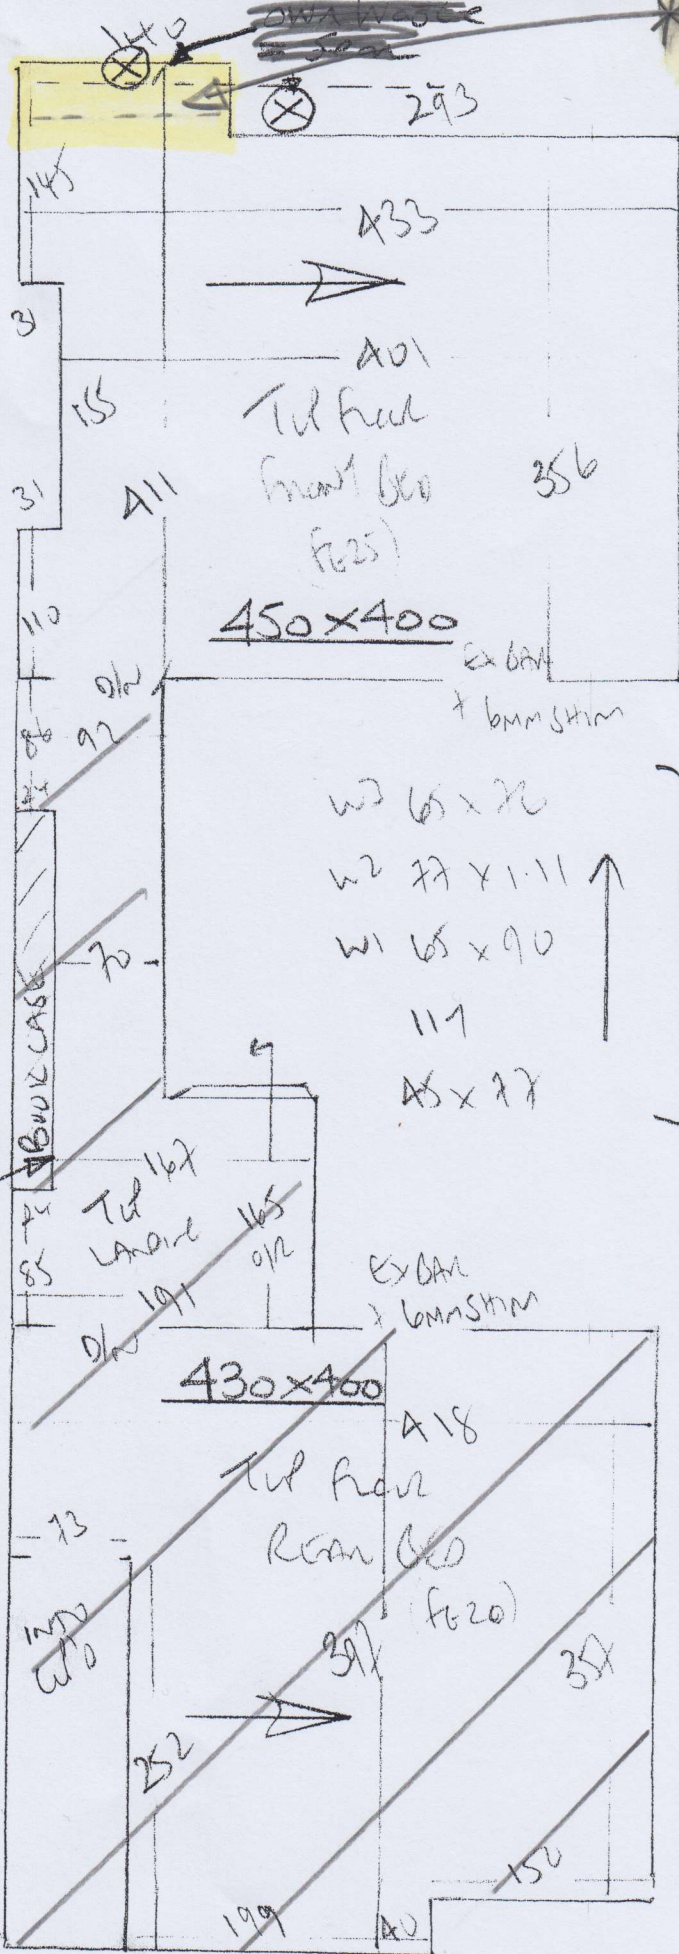 140
293
145
433
31
401
155
TOP FLOOR
FRONT BED
(FE25)
411
356
31
450x400
110
EX BAR
+ 6MM SHIM
D/W
92
86
W3 65 x 76
W2 77 x 1.11
W1 65 x 90
117
45 x 77
70
BOOKCASE
167
TOP
LANDING
165
O/R
85
191
D/W
EX BAR
+ 6MM SHIM
430x400
418
TOP FLOOR
REAR BED
(FE20)
73
INTO
397
357
252
150
199
40